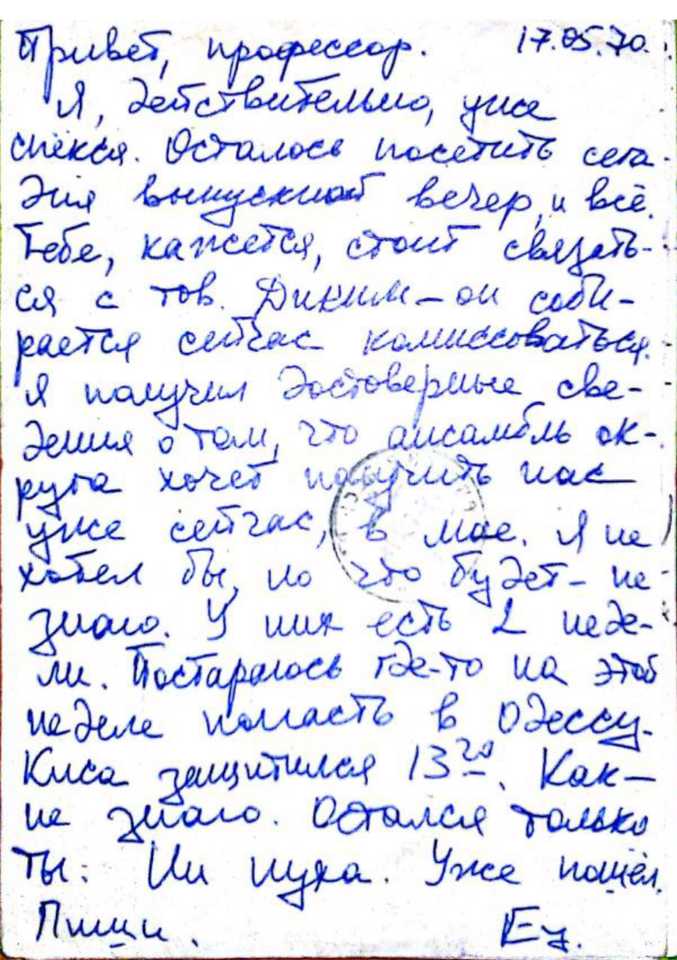 Привет, профессор. 17.05.70.
Я, действительно, уже
спёкся. Осталось посетить сего-
дня выпускной вечер, и всё.
Тебе, кажется, стоит связать-
ся с тов. Диким – он соби-
рается сейчас комиссоваться.
Я получил достоверные све-
дения о том, что ансамбль ок-
руга хочет получить нас
уже сейчас, в мае. Я не
хотел бы, но что будет – не
знаю. У них есть 2 неде-
ли. Постараюсь где-то на этой
неделе попасть в Одессу.
Киса защитился 13го. Как –
не знаю. Остался только
ты. Ни пуха. Уже пошёл.
Пиши.